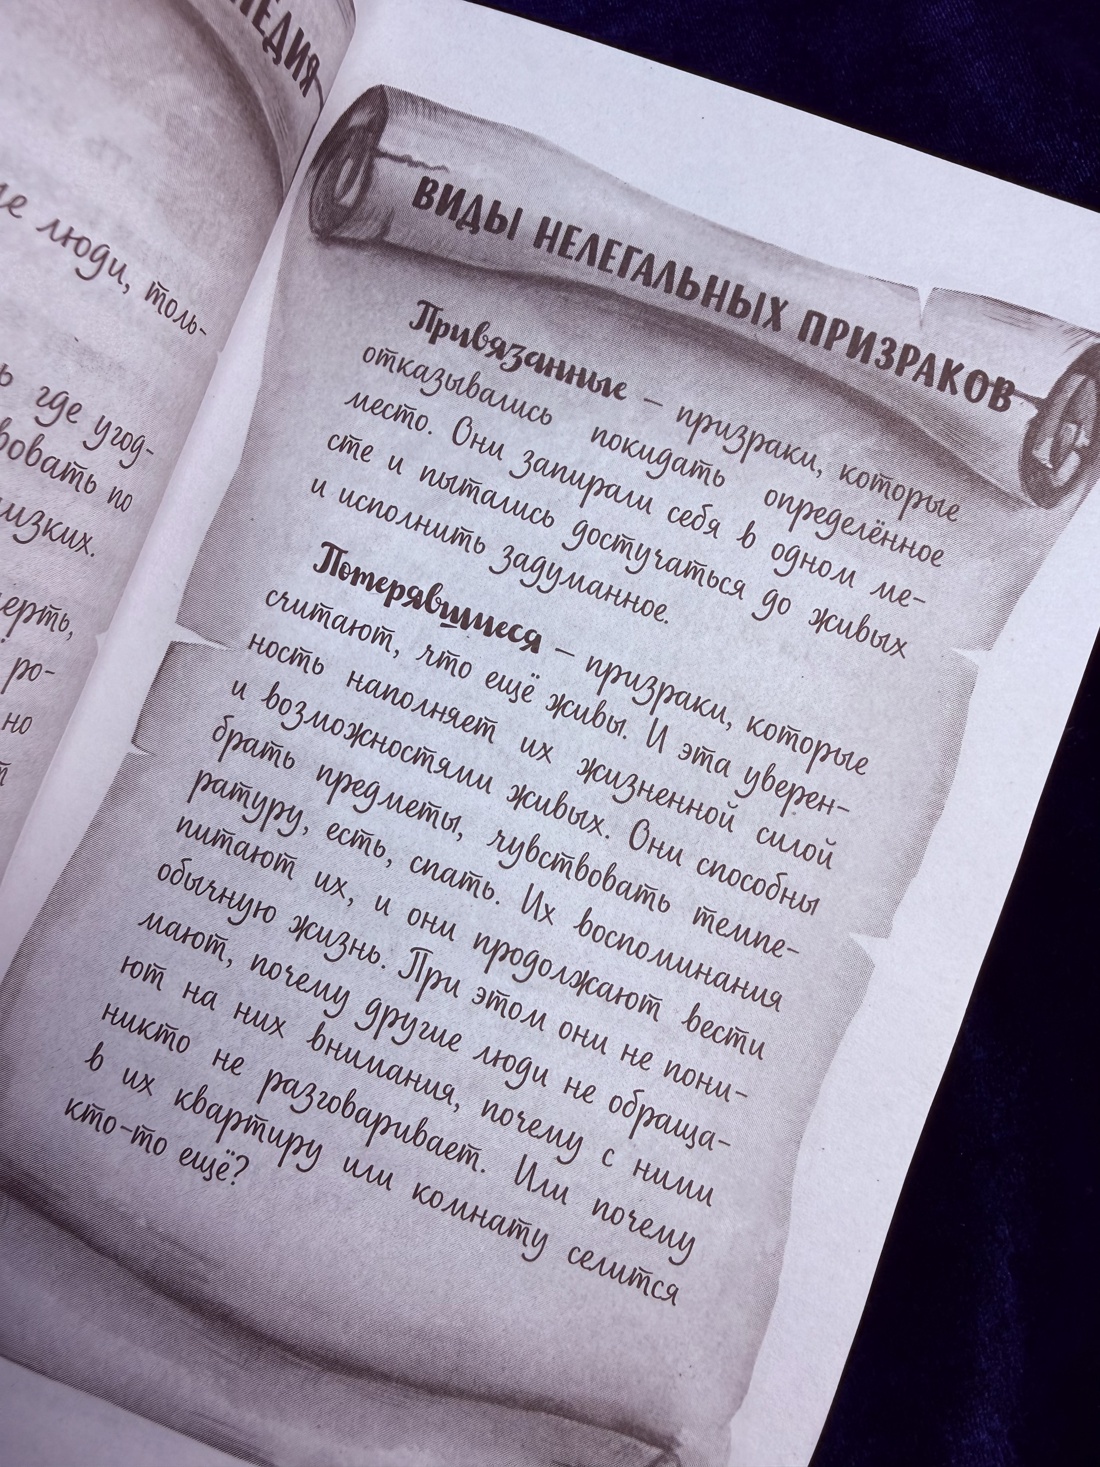 люди, толь-
где угод-
по
но
ВИДЫ НЕЛЕГАЛЬНЫХ ПРИЗРАКОВ
Привязанные – призраки, которые
отказывались покидать определённое
место. Они запирали себя в одном ме-
сте и пытались достучаться до живых
и исполнить задуманное.
Потерявшиеся – призраки, которые
считают, что ещё живы. И эта уверен-
ность наполняет их жизненной силой
и возможностями живых. Они способны
брать предметы, чувствовать темпе-
ратуру, есть, спать. Их воспоминания
питают их, и они продолжают вести
обычную жизнь. При этом они не пони-
мают, почему другие люди не обраща-
ют на них внимания, почему с ними
никто не разговаривает. Или почему
в их квартиру или комнату селится
кто-то ещё?